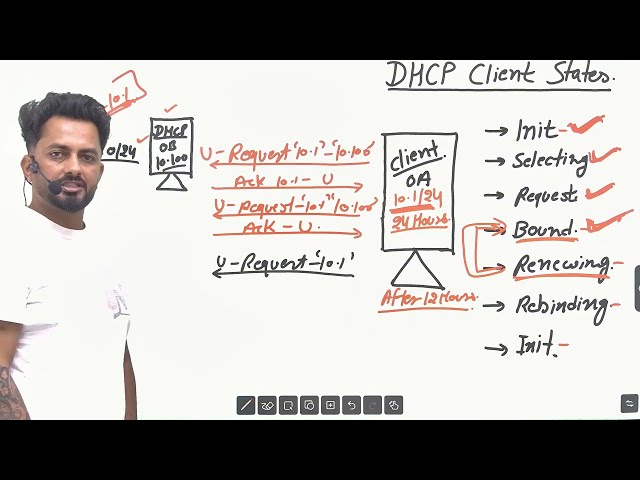 DHCP Client States.
10.1
0/24
DHCP
OB
10.100
U-Request '10.1'-'10.100'
Ack 10.1-U
U-Request-'10.1' '10.100'
Ack-U.
U-Request-'10.1'
Client.
OA
10.1/24
24 Hours.
After 12 Hours.
→ Init-
→ Selecting
→ Request
→ Bound.-
→ Renewing.-
→ Rebinding-
→ Init.-